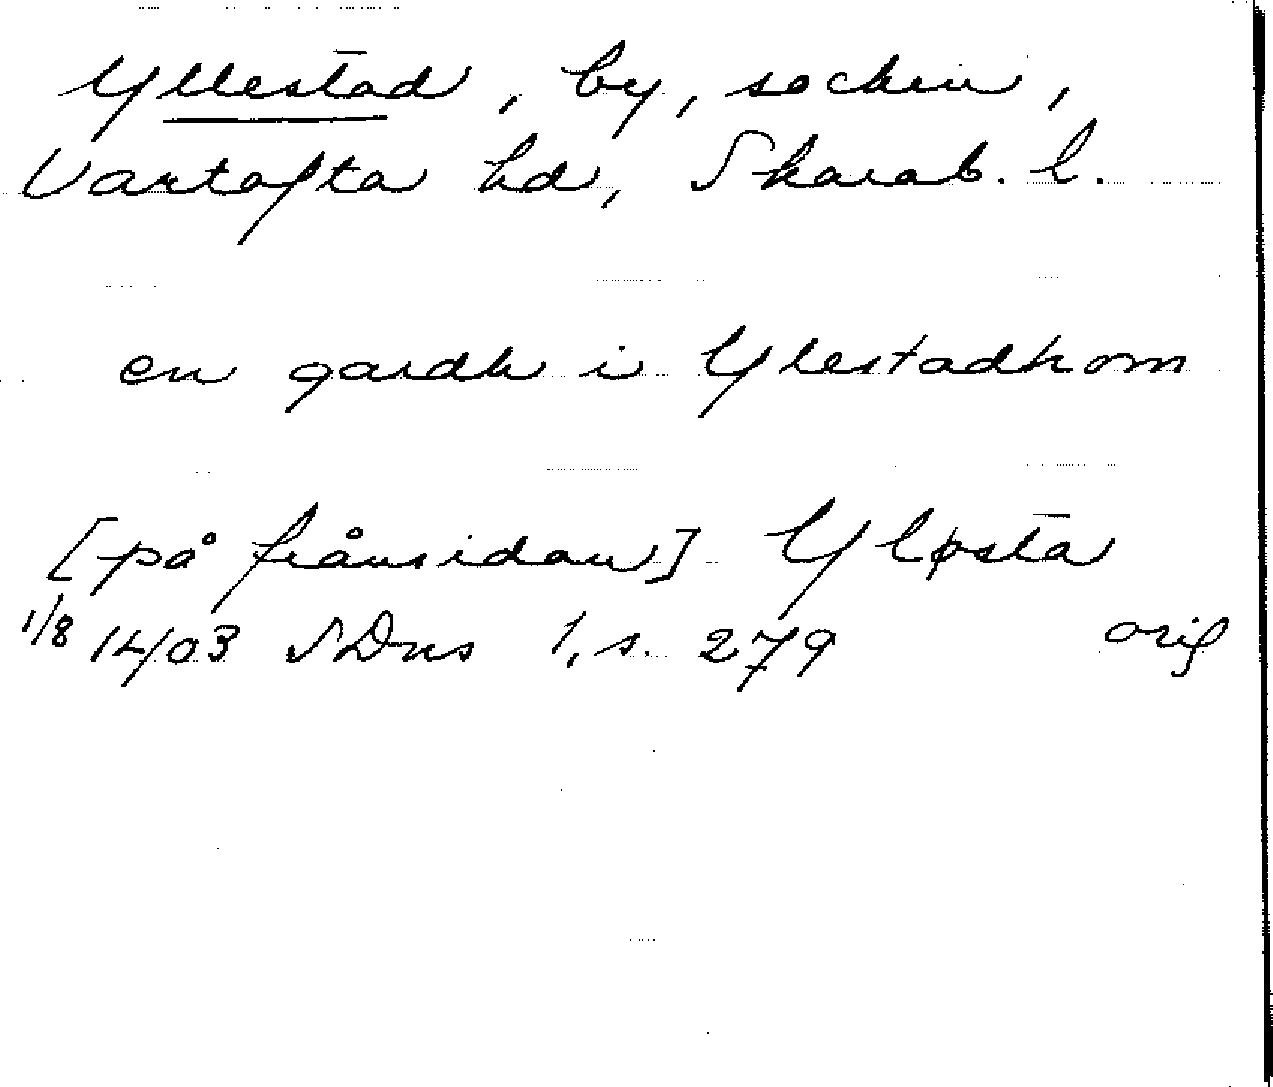 Yllestad, by, socken,
Vartofta hd, Skarab. l.
en gardh i Ylestadhom
[på frånsidan] Yløsta
1/8 1403 SDns 1, s. 279 orig